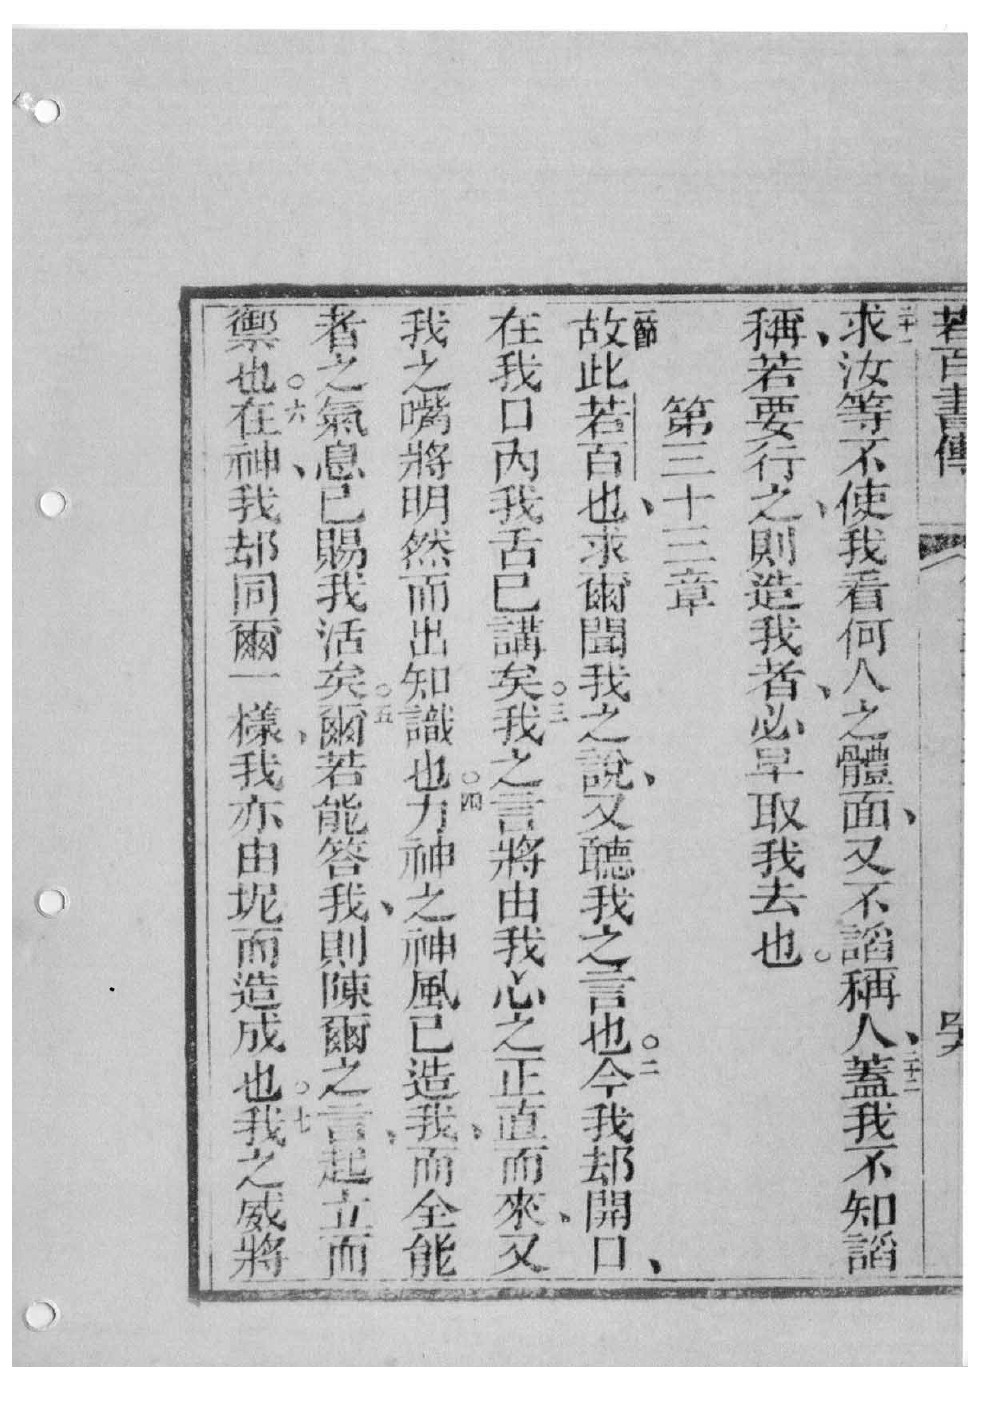 若百書傳
二十一求汝等不使我看何人之體面、又不謟稱人、二十二蓋我不知謟
稱、若要行之、則造我者、必早取我去也。
第三十三章
一節故此若百也、求爾聞我之說、又聽我之言也。○二今我却開口、
在我口內我舌已講矣。○三我之言將由我心之正直而來、又
我之嘴將明然而出知識也。○四力神之神風已造我、而全能
者之氣息已賜我活矣。○五爾若能答我、則陳爾之言、起立而
禦也。○六在神、我却同爾一樣、我亦由坭而造成也。○七我之威將